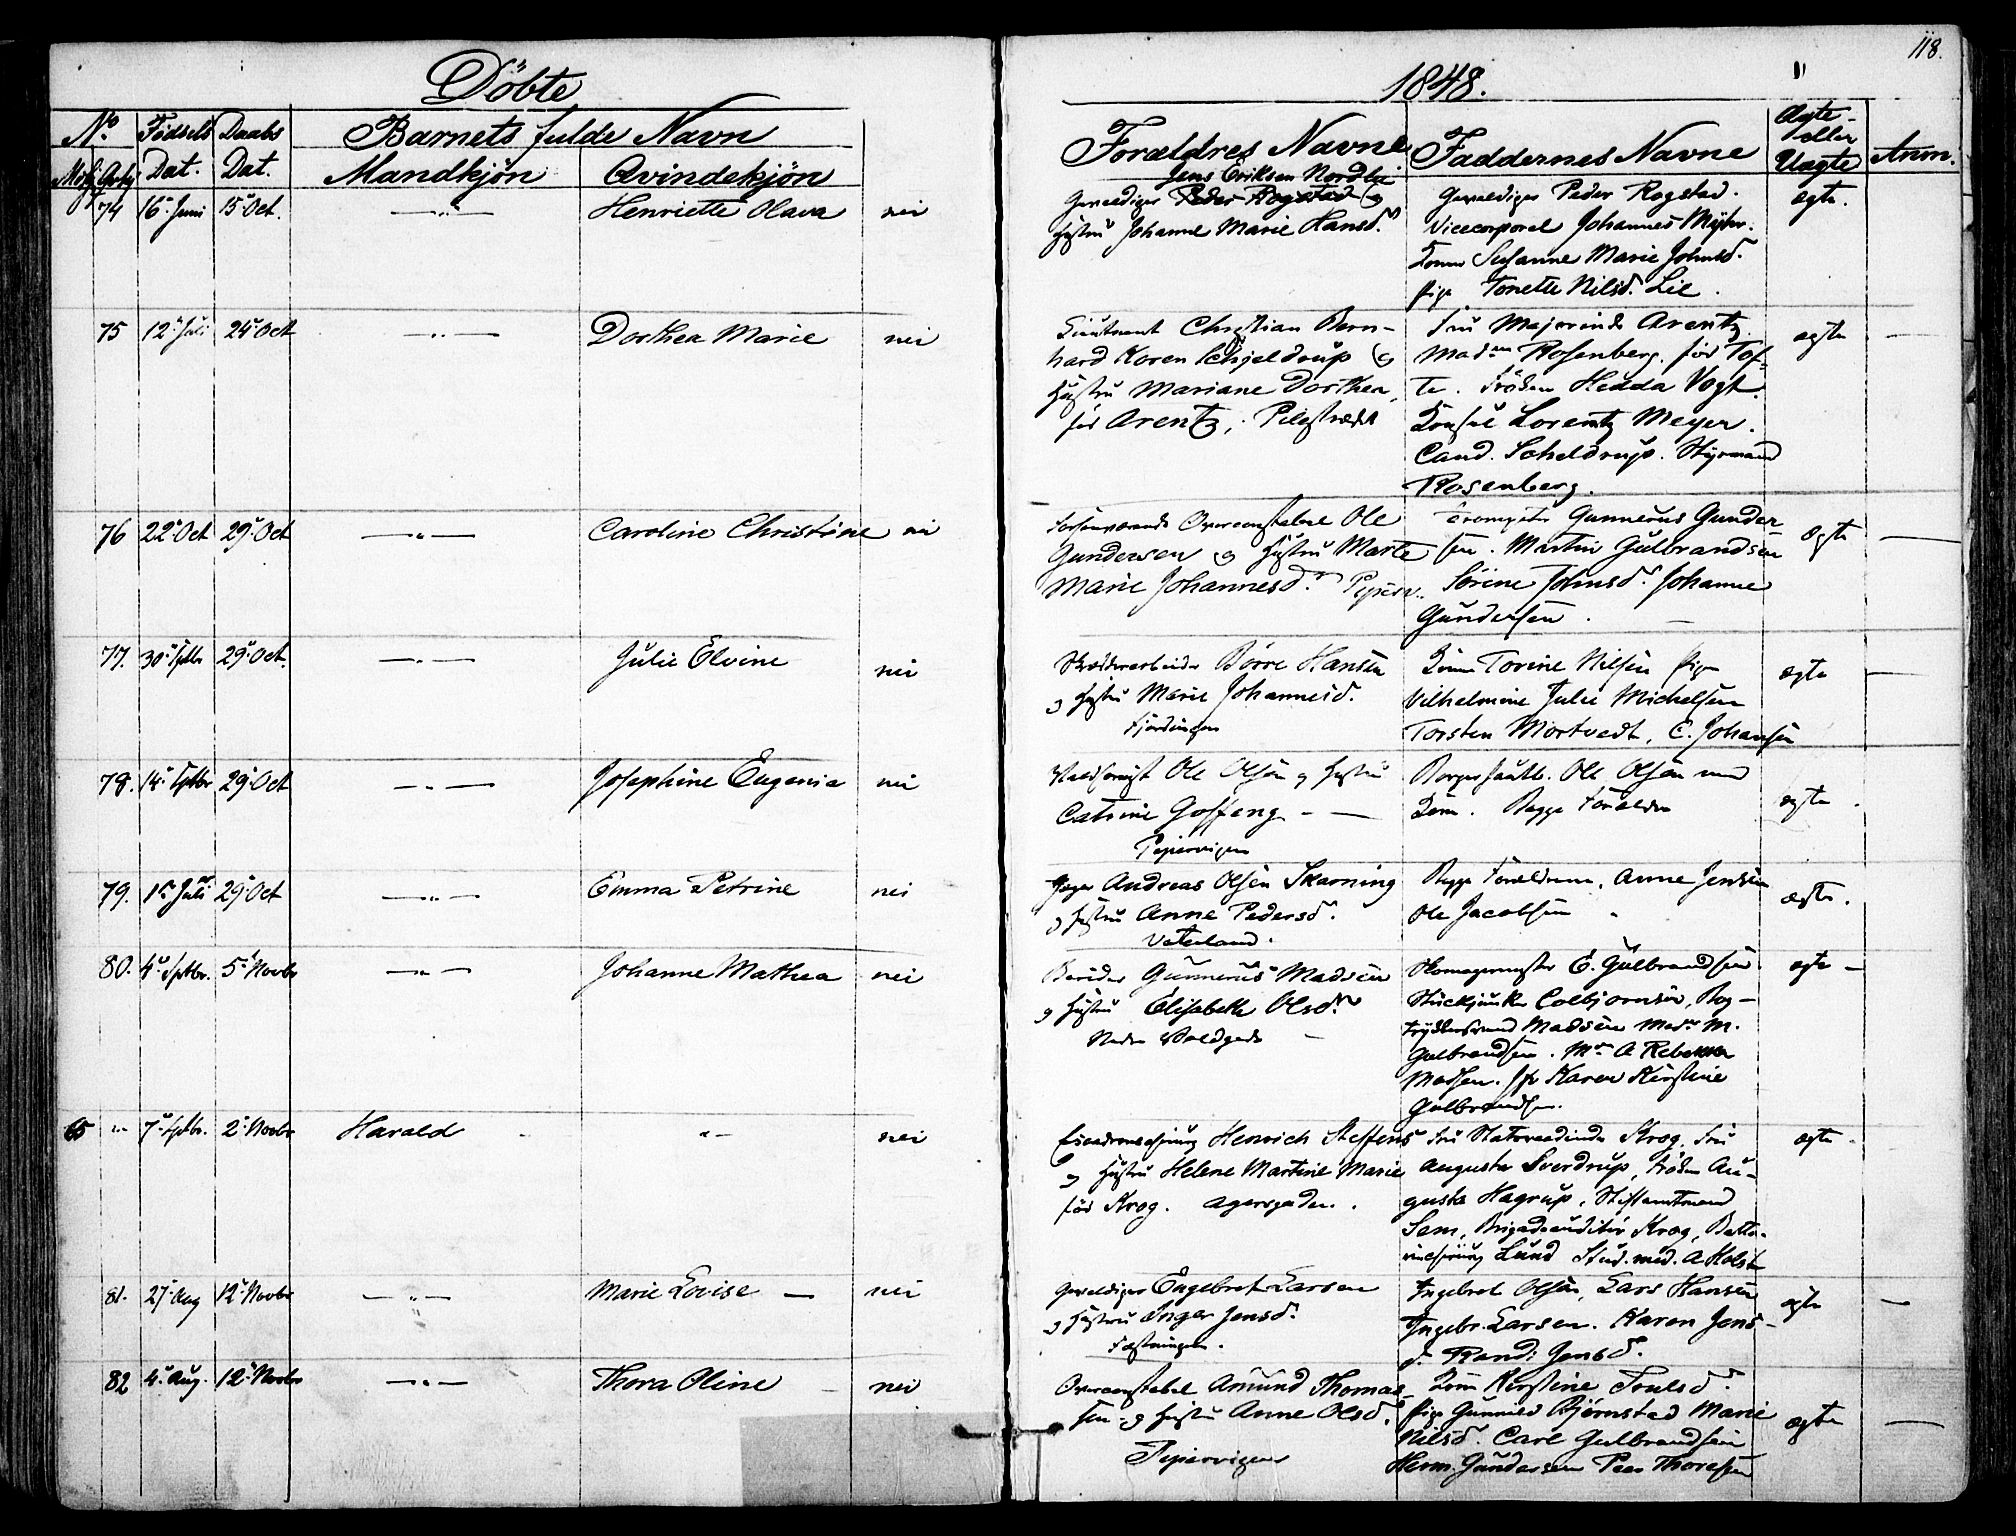 118.
Döbte
1848.
No
Födsels
Daabs
Barnets fulde Navn
Forældres Navne
Faddernes Navne
Ægte- eller Uægte
Anm.
Dat.
Dat.
Mandkjön
Qvindekjön
74 16 Juni 15 Oct. —"— Henriette Olava nei
Jens Eriksen Nordlie
Gevaldiger Peder Rogstad og
Hustru Johanne Marie Hansd.
Gevaldiger Peder Rogstad.
Vicecorporal Johannes
Kone Susanne Marie Johnsd.
Pige Tonette Nilsd. Lie.
ægte.
75 12 Juli 24 Oct —"— Dorthea Marie nei
Lieutnant Christian Bern-
hard Koren Schjeldrup og
Hustru Mariane Dorthea,
föd Arentz, Pilestrædet
Fru Majorinde Arentz.
Madm Rosenberg, föd Tof-
te. Fröken Hedda Vogt.
Konsul Lorentz Meyer.
Cand. Scheldrup. Styrmand
Rosenberg.
ægte —
76 22 Oct 29 Oct —"— Caroline Christine nei
Overconstabel Ole
Gundersen og Hustru Marte
Marie Johannesd.
Trompeter Gunnerus Gunder
sen. Martin Gulbrandsen
Sörine Johnsd. Johanne
Gundersen.
ægte —
77. 30 Sptbr 29 Oct. —"— Julie Elvine nei
Börre Hansen
og Hustru Marie Johannesd.
Fjerdingen
Kone Torine Nilsen Pige
Vilhelmine Julie Michelsen
Torsten Mortvedt, C. Johansen
ægte —
78. 14 Sptbr 29 Oct —"— Josephine Eugenia nei
Ole Olsen og Hustru
Catrine Goffeng - —
Pipervigen
Ole Olsen med
Kone. Begge Forældre
ægte.
79. 1 Juli 29 Oct —"— Emma Petrine nei
Jæger Andreas Olsen Skarning
og Hustru Anne Pedersd.
Vaterland.
Begge Forældrene, Anne Jensen
Ole Jacobsen
ægte.
80. 4 Sptbr. 5 Novbr —"— Johanne Mathea nei
Berider Gunnerus Madsen
og Hustru Elisabeth Olsd.
Nedre Voldgade —
Skomagermester E. Gulbrandsen
Stuckjunker Colbjornsen, Bog-
trykkersvend Madsen Madm M.
Gulbrandsen. Mm A Rebekka
Madsen. Jfr Karen Kirstine
Gulbrandsen.
ægte —
65 "- 7 Sptbr. 2 Novbr Harald "- nei
Henrich Steffens
og Hustru Helene Martine Marie
föd Krog. Agersgaden.
Fru Statsraadinde Krog, Fru
Augusta Sverdrup, Fröken Au-
gusta Hagrup, Stiftamtmand
Sem, Brigadeauditör Krog, Batte-
Lund Stud. med. A Holst
ægte
81. 27 Aug 12 Novbr —"— Marie Lovise — nei
Gevaldiger Engebret Larsen
og Hustru Inger Jensd.
Fæstningen.
Ingebret Olsen, Lars Hansen
Ingebr. Larsen. Karen Jens-
d. Randi Jensd.
ægte —
82 4 Aug. 12 Novbr —"— Thora Oline — nei
Overconstabel Amund Thomas-
sen og Hustru Anne Olsd.
Pipervigen
Kone Kirstine Trulsd.
Pige Gunnild Bjørnstad Marie
Nilsd. Carl Gulbrandsen
Herm. Gundersen Peer Thoresen
ægte —